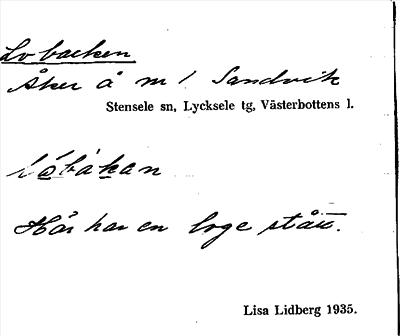 Lobacken
Åker å m/ Sandvik
Stensele sn, Lycksele tg, Västerbottens l.
Här har en loge stått.
Lisa Lidberg 1935.